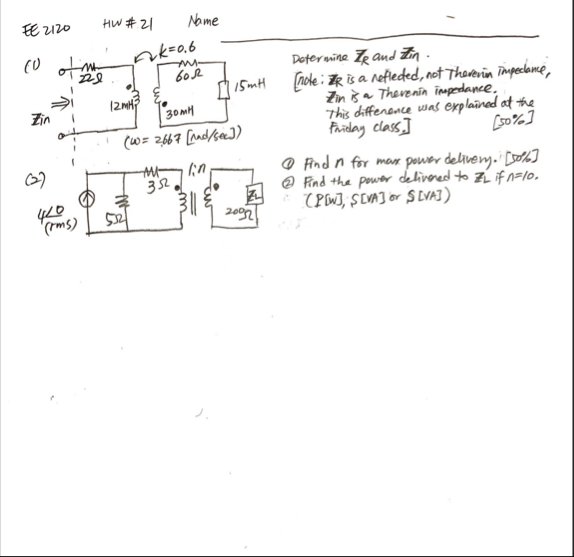 EE 2120 HW # 21 Name
(1) k=0.6
22Ω 60Ω 15mH
Zin ⇒ 12mH 30mH
(ω= 2,667 [rad/sec])
Determine ZR and Zin.
[note: ZR is a reflected, not Thevenin impedance,
Zin is a Thevenin impedance.
This difference was explained at the
Friday class.] [50%]
(2) 1:n
3Ω
4∠0 (rms) 5Ω 200Ω ZL
① Find n for max power delivery. [50%]
② Find the power delivered to ZL if n=10.
(P[W], S[VA] or S[VA])